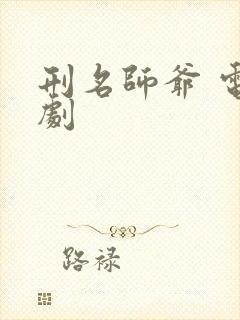 刑名師爺 電
劇
路禄